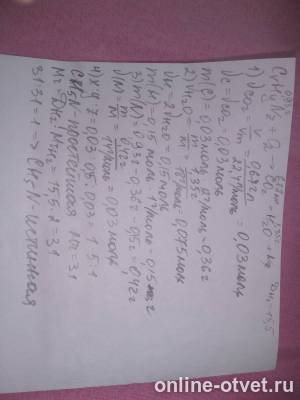 0,93г 0,672л 1,35г
CxHyNz + O2 → CO2 + H2O + N2 DH2 = 15,5
1) νCO2 = V/Vm = 0,672л/22,4л/моль = 0,03моль
νC = νCO2 = 0,03моль
m(C) = 0,03моль · 12г/моль = 0,36г
2) νH2O = m/M = 1,35г/18г/моль = 0,075моль
νH = 2νH2O = 0,15моль
m(H) = 0,15моль · 1г/моль = 0,15г
3) m(N) = 0,93г - 0,36г - 0,15г = 0,42г
ν(N) = m/M = 0,42г/14г/моль = 0,03моль
4) x:y:z = 0,03:0,15:0,03 = 1:5:1
CH5N - простейшая Mr = 31
Mr = DH2 · MrH2 = 15,5 · 2 = 31
31:31 = 1 => CH5N - истинная
online-otvet.ru